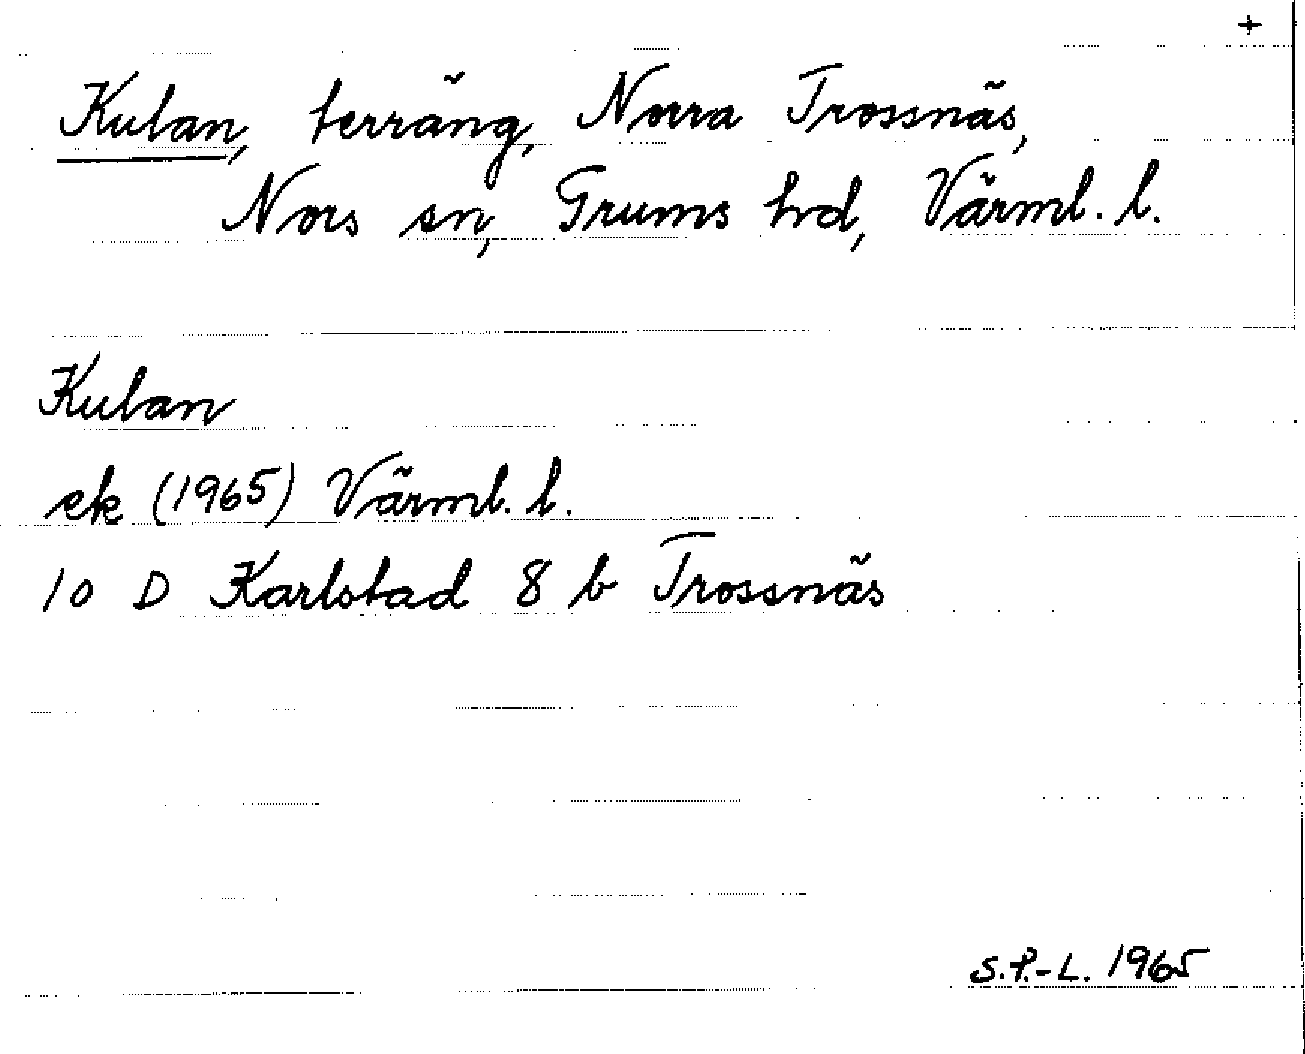 +
Kulan, terräng, Norra Trossnäs,
Nors sn, Grums hd, Värml. l.
Kulan
ek (1965) Värml. l.
10 D Karlstad 8 b Trossnäs
S.P.-L. 1965